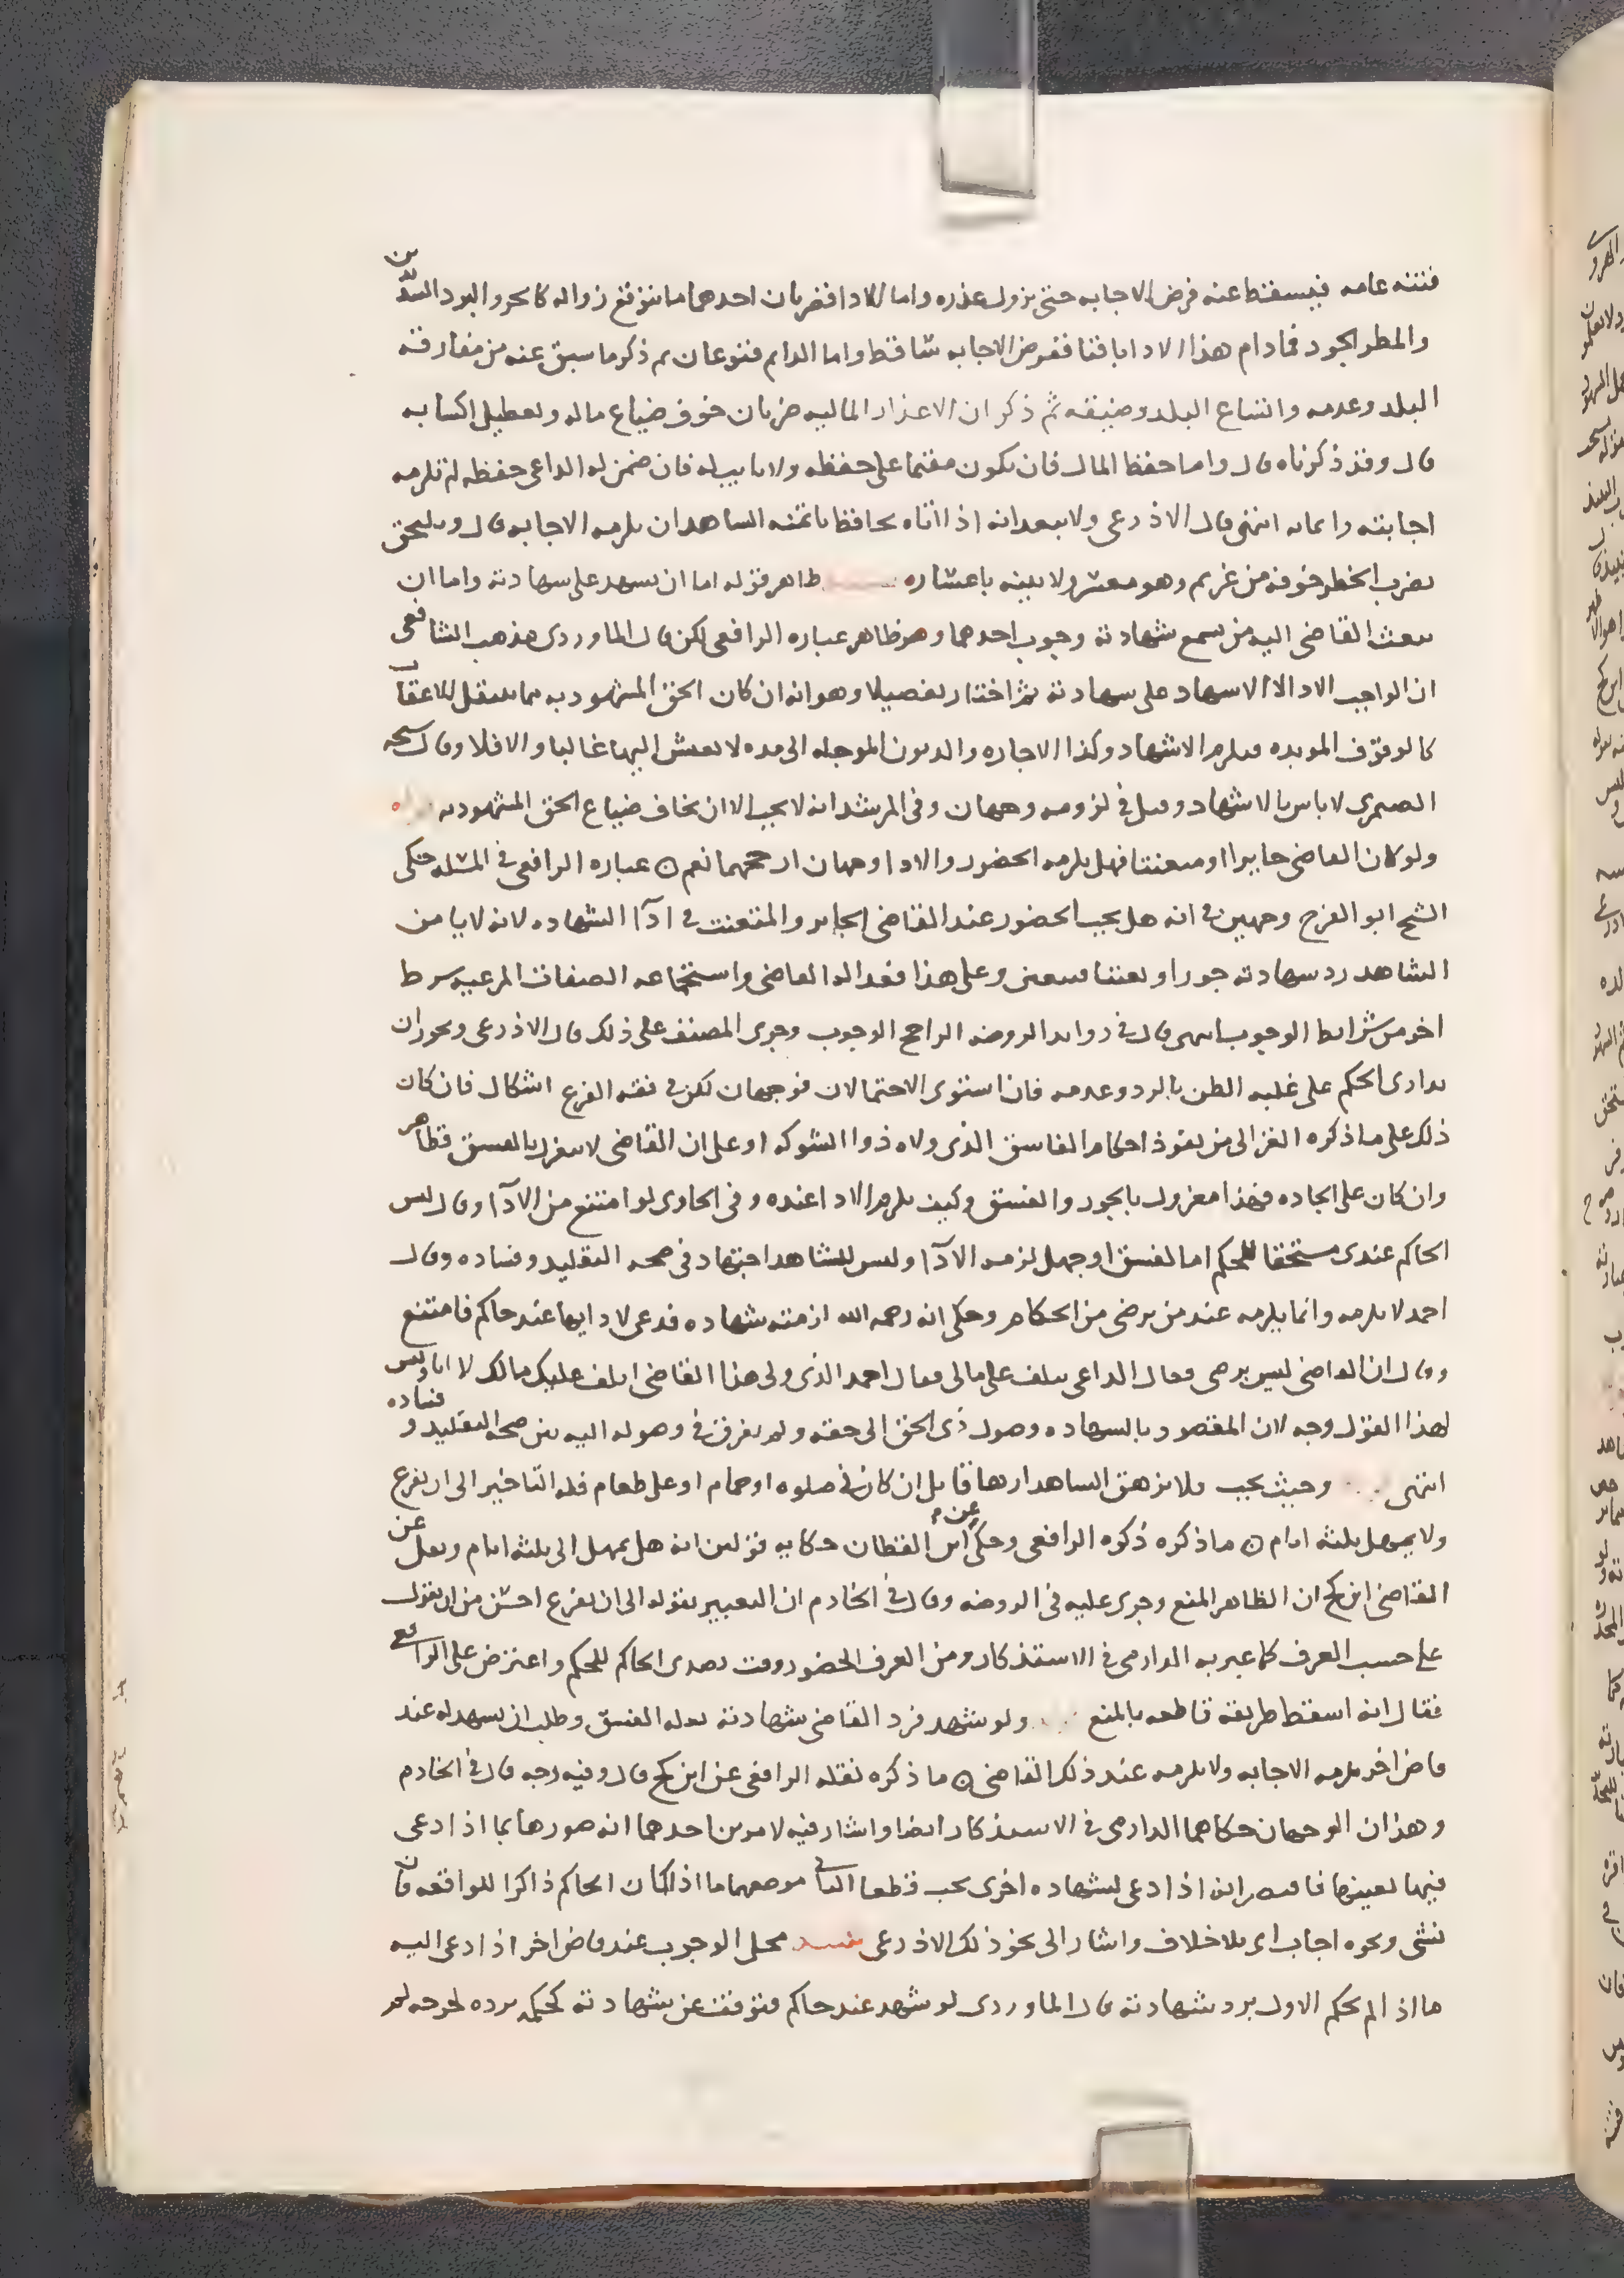 فتنه عامه فيسقط عنه فرض الاجابه حتى يزول عذره واما الادا فضربان احدهما ما يتوقع زواله كالحر والبرد الشديدين
والمطر الجود فما دام هذا الادا باقيا ففرض الاجابه ساقط واما الدايم فنوعان ثم ذكر ما سبق عنه من مفارقة
البلد وعدمه واتساع البلد وضيقه ثم ذكر ان الاعذار الماليه ضربان خوف ضياع ماله وتعطيل اكتسابه
قال وقد ذكرناه قال واما حفظ المال فان يكون مقيما على حفظه ولا نايب له فان ضمن له الداعي حفظه لم تلزمه
اجابته وايمانه انتهى قال الاذرعي ولا يبعد انه اذا اتاه بحافظ ياتمنه الشاهد ان يلزمه الاجابه قال ويلتحق
بضرب الخطر خوفه من غريم وهو معسر ولا بينه باعساره ظاهر قوله اما ان يشهد على شهادته واما ان
يبعث القاضي اليه من يسمع شهادته وجوب احدهما وهو ظاهر عباره الرافعي لكن قال الماوردي مذهب الشافعي
ان الواجب الادا لا الاشهاد على شهادته ثم اختار تفصيلا وهو انه ان كان الحق المشهود به مما ينتقل للاعقاب
كالوقوف الموبده فيلزم الاشهاد وكذا الاجاره والديون الموجله الى مده لا يعيش اليها غالبا والا فلا وقال شيخه
الصيمري لا باس بالاشهاد وقيل في لزومه وجهان وفي المرشد انه لا يجب الا ان يخاف ضياع الحق المشهود به
ولو كان القاضي جايرا او متعنتا فهل يلزمه الحضور والادا وجهان ارجحهما نعم ن عباره الرافعي في المسئله حكى
الشيخ ابو الفرج وجهين في انه هل يجب الحضور عند القاضي الجاير والمتعنت في ادآ الشهاده لانه لا يامن
الشاهد رد شهادته جورا او تعنتا فيتعير وعلى هذا فعداله القاضي واستجماعه الصفات المرعيه شرط
اخر من شرايط الوجوب انتهى قال في زوايد الروضه الراجح الوجوب وجرى المصنف على ذلك قال الاذرعي ويجوز ان
يدار الحكم على غلبه الظن بالرد وعدمه فان استوى الاحتمالان فوجهان لكن في فقه الفرع اشكال فان كان
ذلك على ما ذكره الغزالي من نفوذ احكام الفاسق الذي ولاه ذوا الشوكه او على ان القاضي لا ينعزل بالفسق فظاهر
وان كان على الجاده فهذا معزول بالجور والفسق وكيف يلزم الادا عنده وفي الحاوي لو امتنع من الادآ وقال ليس
الحاكم عندي مستحقا للحكم اما لفسق او جهل لزمه الادآ وليس للشاهد اجتهاد في صحه التقليد وفساده وقال
احمد لا يلزمه وانما يلزمه عند من يرضى من الحكام وحكي انه رحمه الله لزمته شهاده فدعي لادايها عند حاكم فامتنع
وقال ان القاضي ليس برضى فقال الداعي يتلف علي مالي فقال احمد الذي ولى هذا القاضي اتلف عليك مالك لا انا وليس
لهذا القول وجه لان المقصود بالشهاده وصول ذي الحق الى حقه ولم يفرق في وصوله اليه بين صحه التقليد وفساده
انتهى وحيث يجب فلا يرهق الشاهد ارهاقا بل ان كان في صلوه او حمام او على طعام فله التاخير الى ان يفرغ
ولا يمهل ثلثه ايام ن ما ذكره ذكره الرافعي وحكى عن ابن القطان حكايه قولين انه هل يمهل الى ثلثه ايام ونقل عن
القاضي ابن كج ان الظاهر المنع وجرى عليه في الروضه وقال في الخادم ان التعبير بقوله الى ان يفرغ احسن من ان يقول
على حسب العرف كما عبر به الدارمي في الاستذكار ومن العرف الحضور وقت تصدي الحاكم للحكم واعترض على الرافعي
فقال انه اسقط طريقه قاطعه بالمنع ولو شهد فرد القاضي شهادته بعله الفسق وطلب ان يشهد له عند
قاض اخر يلزمه الاجابه ولا يلزمه عند ذلك القاضي ن ما ذكره نقله الرافعي عن ابن كج قال وفيه وجه قال في الخادم
وهذان الوجهان حكاهما الدارمي في الاستذكار ايضا واشار فيه لامرين احدهما انه صورها بما اذا دعي
فيها بعينها فافهم انه اذا دعي لشهاده اخرى يجب قطعا الثاني موضعهما ما اذا كان الحاكم ذاكرا للواقعه فان
نسي ونحوه اجاب اي بلا خلاف واشار الى نحو ذلك الاذرعي تنبيه محل الوجوب عند قاض اخر اذا دعي اليه
ما اذا لم يحكم الاول برد شهادته قال الماوردي لو شهد عند حاكم فتوقف عن شهادته كحكمه برده لجرحه لم